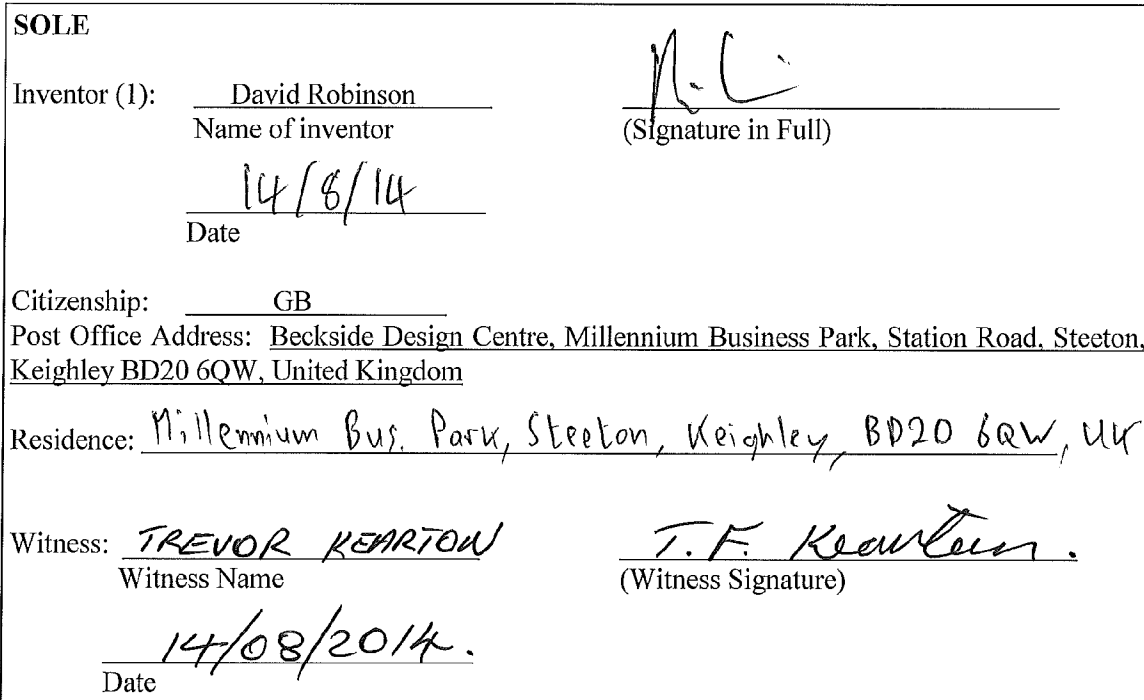 SOLE
Inventor (1): David Robinson
Name of inventor (Signature in Full)
14/8/14
Date
Citizenship: GB
Post Office Address: Beckside Design Centre, Millennium Business Park, Station Road, Steeton,
Keighley BD20 6QW, United Kingdom
Residence: Millennium Bus. Park, Steeton, Keighley, BD20 6QW, UK
Witness: TREVOR KEARTON T.F. Kearton.
Witness Name (Witness Signature)
14/08/2014.
Date